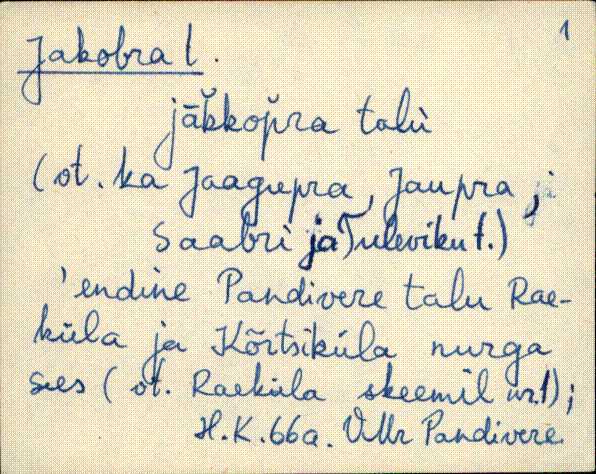 1
Jakobra t.
jāk̆kŏpra talù
(vt. ka Jaagupra, Jaupra,
Saabri ja Tuleviku t.)
'endine Pandivere talu Rae-
küla ja Kõrtsiküla nurga
sees (vt. Raeküla skeemil nr.1);
H.K. 66a. VMr Pandivere